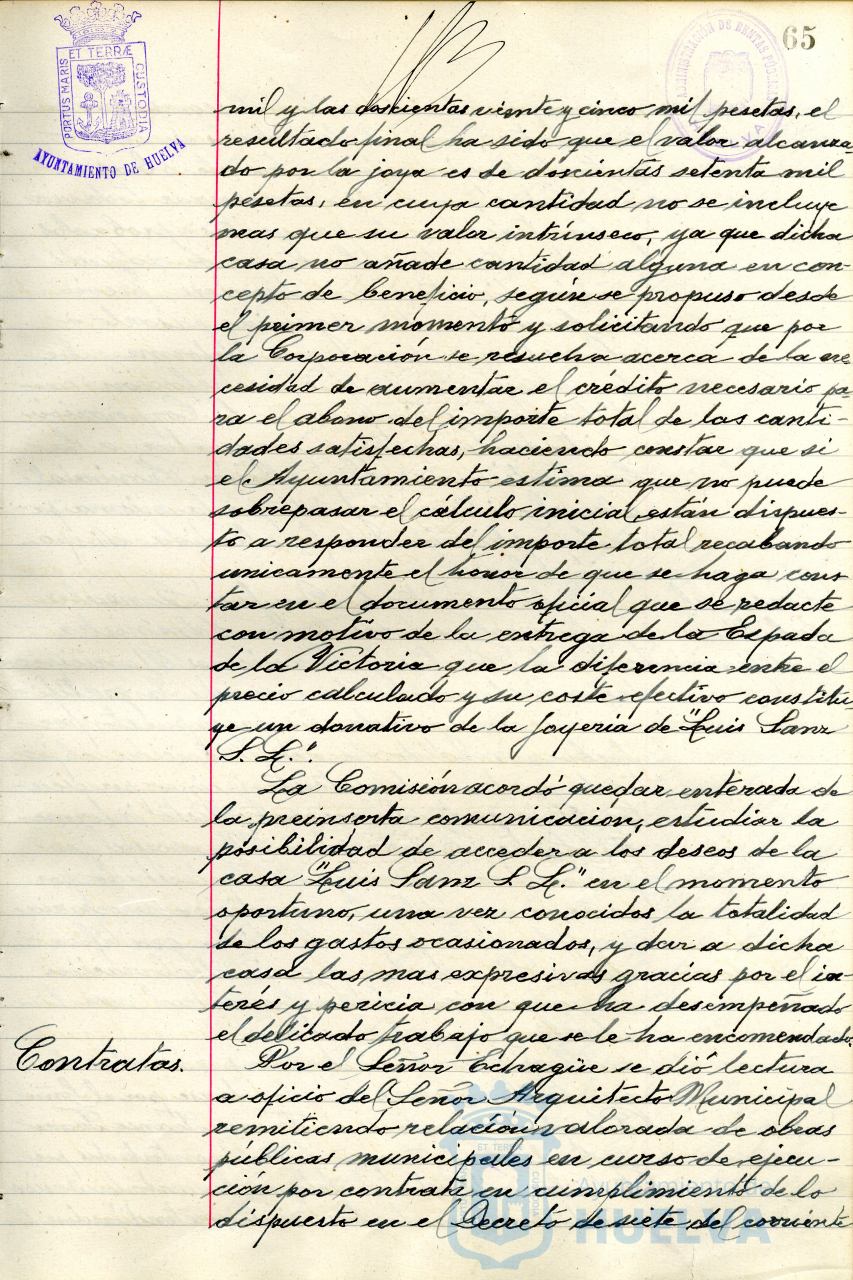 65
PORTUS MARIS ET TERRÆ CUSTODIA
AYUNTAMIENTO DE HUELVA
ADMINISTRACIÓN DE RENTAS PÚBLICAS
mil y las doscientas veinte y cinco mil pesetas, el
resultado final ha sido que el valor alcanza-
do por la joya es de doscientas setenta mil
pesetas, en cuya cantidad no se incluye
mas que su valor intrínseco, ya que dicha
casa no añade cantidad alguna en con-
cepto de beneficio, según se propuso desde
el primer momento y solicitando que por
la Corporación se resuelva acerca de la ne-
cesidad de aumentar el crédito necesario pa-
ra el abono del importe total de las canti-
dades satisfechas, haciendo constar que si
el Ayuntamiento estima que no puede
sobrepasar el cálculo inicial, están dispues-
to a responder del importe total recabando
unicamente el honor de que se haga cons-
tar en el documento oficial que se redacte
con motivo de la entrega de la Espada
de la Victoria que la diferencia entre el
precio calculado y su coste efectivo constitu-
ye un donativo de la Joyería de "Luis Sanz
S. L.".
La Comisión acordó quedar enterada de
la preinserta comunicacion, estudiar la
posibilidad de acceder a los deseos de la
casa "Luis Sanz S. L." en el momento
oportuno, una vez conocidos la totalidad
de los gastos ocasionados, y dar a dicha
casa las mas expresivas gracias por el in-
terés y pericia con que ha desempeñado
el delicado trabajo que se le ha encomendado.
Contratas.
Por el Señor Echagüe se dió lectura
a oficio del Señor Arquitecto Municipal
remitiendo relación valorada de obras
públicas municipales en curso de ejecu-
ción por contrata en cumplimiento de lo
dispuesto en el Decreto de siete del corriente
Ayuntamiento de
HUELVA